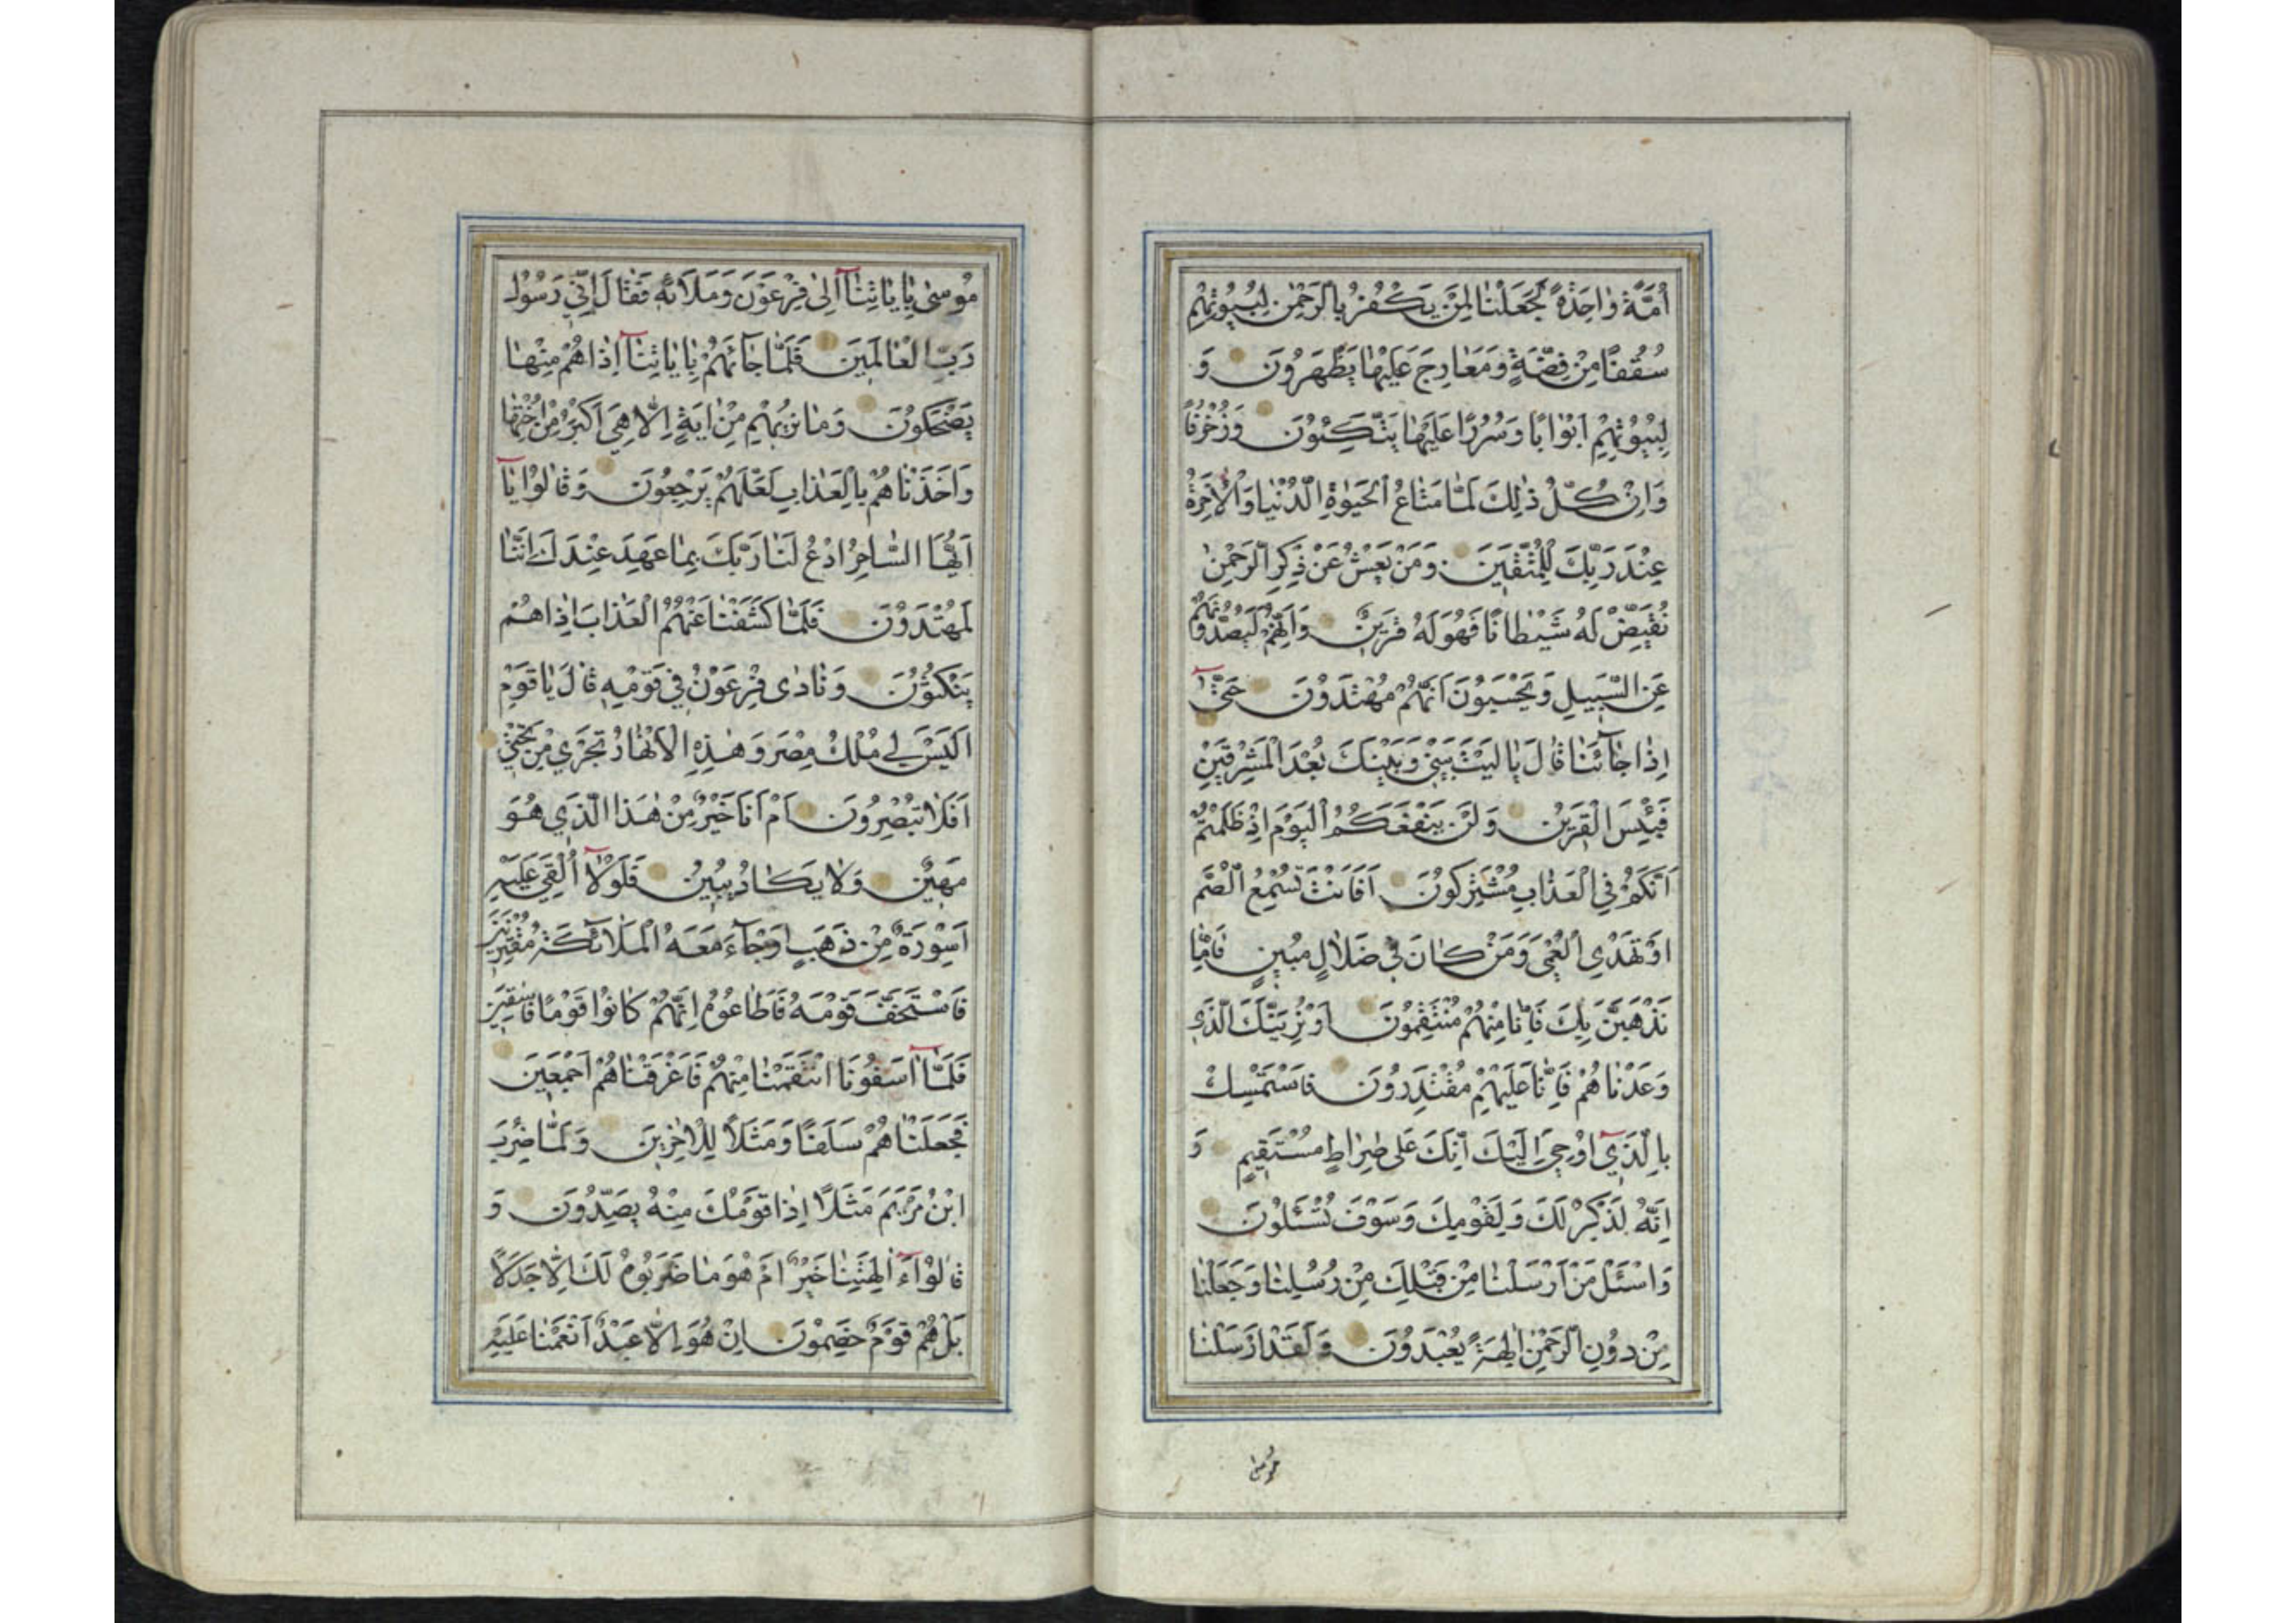 اُمَّةً وٰاحِدَةً لَجَعَلْنٰا لِمَنْ يَكْفُرُ بِالرَّحْمٰنِ لِبُيُوتِهِمْ
سُقُفًا مِنْ فِضَّةٍ وَمَعٰارِجَ عَلَيْهٰا يَظْهَرُونَ وَ
لِبُيُوتِهِمْ اَبْوٰابًا وَسُرُرًا عَلَيْهٰا يَتَّكِئُونَ وَزُخْرُفًا
وَاِنْ كُلُّ ذٰلِكَ لَمّٰا مَتٰاعُ الْحَيٰوةِ الدُّنْيٰا وَالْاٰخِرَةُ
عِنْدَ رَبِّكَ لِلْمُتَّقِينَ وَمَنْ يَعْشُ عَنْ ذِكْرِ الرَّحْمٰنِ
نُقَيِّضْ لَهُ شَيْطٰانًا فَهُوَ لَهُ قَرِينٌ وَاِنَّهُمْ لَيَصُدُّونَهُمْ
عَنِ السَّبِيلِ وَيَحْسَبُونَ اَنَّهُمْ مُهْتَدُونَ حَتّٰى
اِذٰا جٰائَنٰا قٰالَ يٰا لَيْتَ بَيْنِي وَبَيْنَكَ بُعْدَ الْمَشْرِقَيْنِ
فَبِئْسَ الْقَرِينُ وَلَنْ يَنْفَعَكُمُ الْيَوْمَ اِذْ ظَلَمْتُمْ
اَنَّكُمْ فِي الْعَذٰابِ مُشْتَرِكُونَ اَفَاَنْتَ تُسْمِعُ الصُّمَّ
اَوْ تَهْدِي الْعُمْيَ وَمَنْ كٰانَ فِي ضَلٰالٍ مُبِينٍ فَاِمّٰا
نَذْهَبَنَّ بِكَ فَاِنّٰا مِنْهُمْ مُنْتَقِمُونَ اَوْ نُرِيَنَّكَ الَّذِي
وَعَدْنٰاهُمْ فَاِنّٰا عَلَيْهِمْ مُقْتَدِرُونَ فَاسْتَمْسِكْ
بِالَّذِي اُوحِيَ اِلَيْكَ اِنَّكَ عَلٰى صِرٰاطٍ مُسْتَقِيمٍ وَ
اِنَّهُ لَذِكْرٌ لَكَ وَلِقَوْمِكَ وَسَوْفَ تُسْئَلُونَ
وَاسْئَلْ مَنْ اَرْسَلْنٰا مِنْ قَبْلِكَ مِنْ رُسُلِنٰا وَجَعَلْنٰا
مِنْ دُونِ الرَّحْمٰنِ اٰلِهَةً يُعْبَدُونَ وَلَقَدْ اَرْسَلْنٰا
مُوسٰى
مُوسٰى بِاٰيٰاتِنٰا اِلٰى فِرْعَوْنَ وَمَلَائِهِ فَقٰالَ اِنِّي رَسُولُ
رَبِّ الْعٰالَمِينَ فَلَمّٰا جٰائَهُمْ بِاٰيٰاتِنٰا اِذٰا هُمْ مِنْهٰا
يَضْحَكُونَ وَمٰا نُرِيهِمْ مِنْ اٰيَةٍ اِلّٰا هِيَ اَكْبَرُ مِنْ اُخْتِهٰا
وَاَخَذْنٰاهُمْ بِالْعَذٰابِ لَعَلَّهُمْ يَرْجِعُونَ وَقٰالُوا يٰا
اَيُّهَا السّٰاحِرُ ادْعُ لَنٰا رَبَّكَ بِمٰا عَهِدَ عِنْدَكَ اِنَّنٰا
لَمُهْتَدُونَ فَلَمّٰا كَشَفْنٰا عَنْهُمُ الْعَذٰابَ اِذٰا هُمْ
يَنْكُثُونَ وَنٰادٰى فِرْعَوْنُ فِي قَوْمِهِ قٰالَ يٰا قَوْمِ
اَلَيْسَ لِي مُلْكُ مِصْرَ وَهٰذِهِ الْاَنْهٰارُ تَجْرِي مِنْ تَحْتِي
اَفَلٰا تُبْصِرُونَ اَمْ اَنَا خَيْرٌ مِنْ هٰذَا الَّذِي هُوَ
مَهِينٌ وَلٰا يَكٰادُ يُبِينُ فَلَوْلٰا اُلْقِيَ عَلَيْهِ
اَسْوِرَةٌ مِنْ ذَهَبٍ اَوْ جٰاءَ مَعَهُ الْمَلٰائِكَةُ مُقْتَرِنِينَ
فَاسْتَخَفَّ قَوْمَهُ فَاَطٰاعُوهُ اِنَّهُمْ كٰانُوا قَوْمًا فٰاسِقِينَ
فَلَمّٰا اٰسَفُونٰا انْتَقَمْنٰا مِنْهُمْ فَاَغْرَقْنٰاهُمْ اَجْمَعِينَ
فَجَعَلْنٰاهُمْ سَلَفًا وَمَثَلًا لِلْاٰخِرِينَ وَلَمّٰا ضُرِبَ
ابْنُ مَرْيَمَ مَثَلًا اِذٰا قَوْمُكَ مِنْهُ يَصِدُّونَ وَ
قٰالُوا ءَاٰلِهَتُنٰا خَيْرٌ اَمْ هُوَ مٰا ضَرَبُوهُ لَكَ اِلّٰا جَدَلًا
بَلْ هُمْ قَوْمٌ خَصِمُونَ اِنْ هُوَ اِلّٰا عَبْدٌ اَنْعَمْنٰا عَلَيْهِ